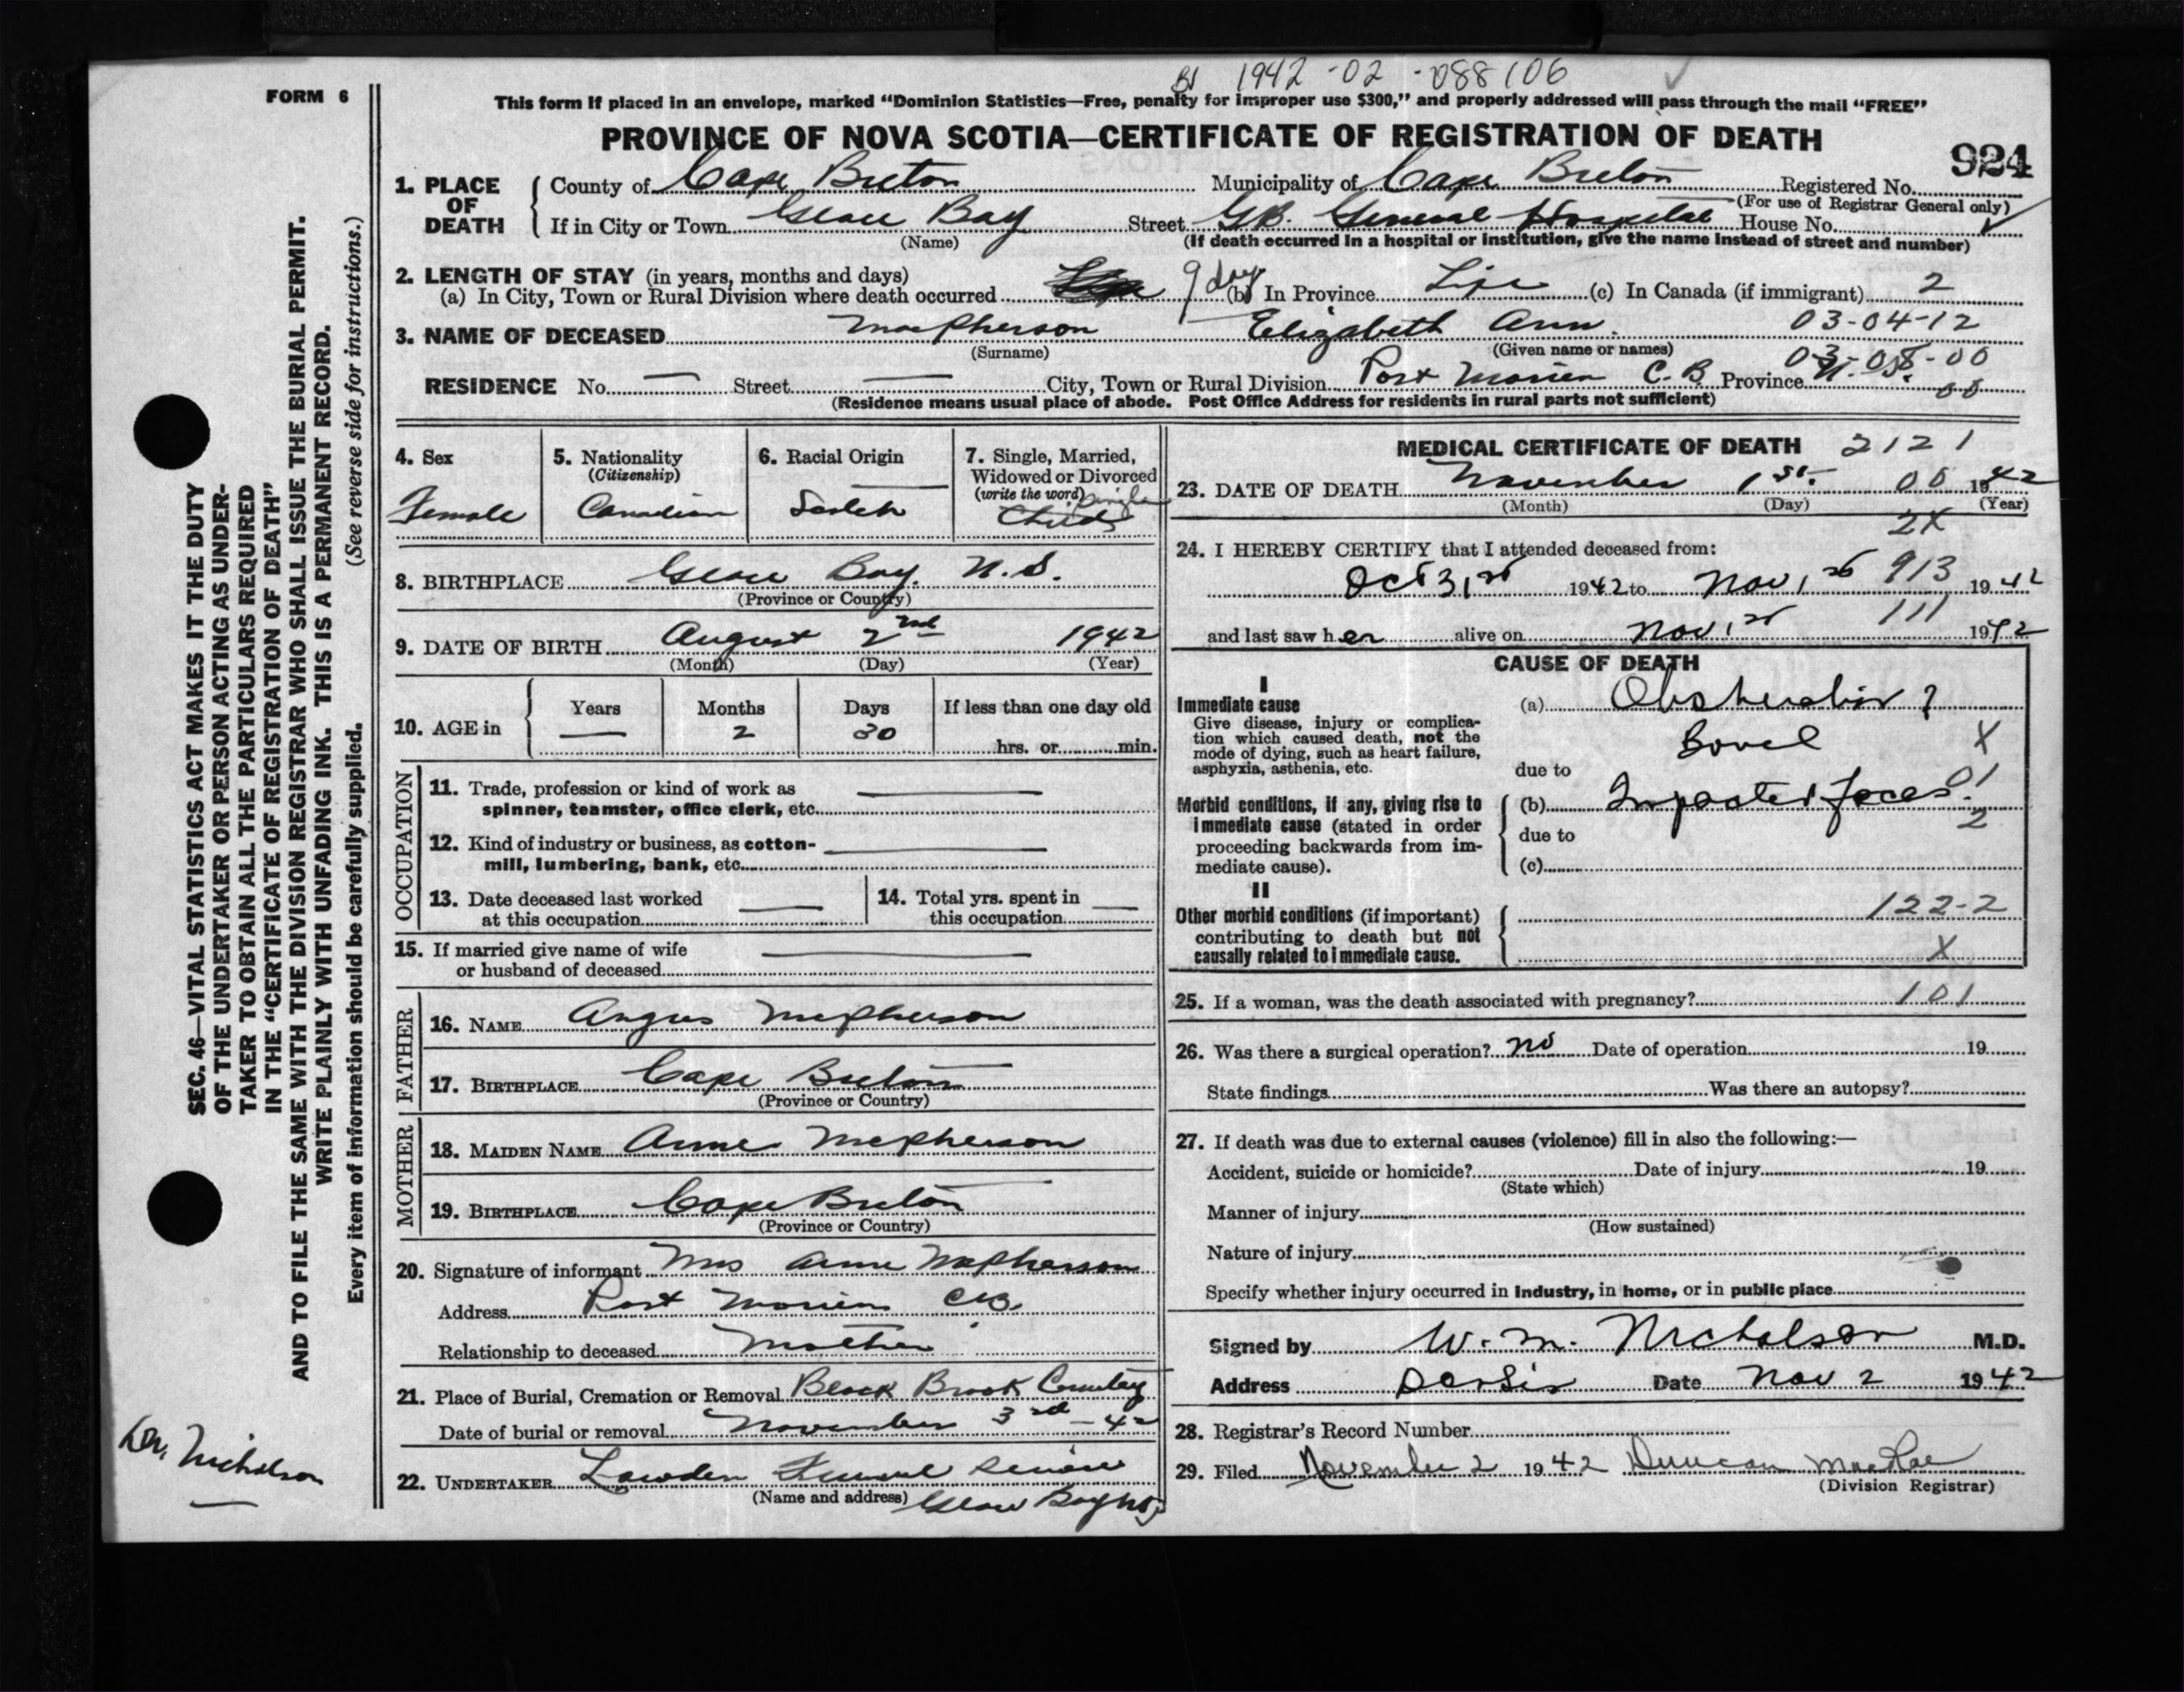 BS 1942-02-088106
FORM 6
This form if placed in an envelope, marked “Dominion Statistics—Free, penalty for improper use $300,” and properly addressed will pass through the mail “FREE”
PROVINCE OF NOVA SCOTIA—CERTIFICATE OF REGISTRATION OF DEATH
924
1. PLACE OF DEATH { County of Cape Breton Municipality of Cape Breton Registered No.
(For use of Registrar General only)
If in City or Town Glace Bay Street G.B. General Hospital House No.
(Name) (If death occurred in a hospital or institution, give the name instead of street and number)
2. LENGTH OF STAY (in years, months and days)
(a) In City, Town or Rural Division where death occurred 9 days (b) In Province Life (c) In Canada (if immigrant) 2
3. NAME OF DECEASED MacPherson Elizabeth Ann. 03-04-12
(Surname) (Given name or names) 03-08-00
RESIDENCE No. — Street — City, Town or Rural Division Port Morien C.B. Province N.S. 00
(Residence means usual place of abode. Post Office Address for residents in rural parts not sufficient)
4. Sex
Female
5. Nationality
(Citizenship)
Canadian
6. Racial Origin
Scotch
7. Single, Married,
Widowed or Divorced
(write the word) Single
Child
8. BIRTHPLACE Glace Bay. N.S.
(Province or Country)
9. DATE OF BIRTH August 2nd 1942
(Month) (Day) (Year)
10. AGE in { Years Months Days If less than one day old
— 2 30 hrs. or min.
OCCUPATION
11. Trade, profession or kind of work as
spinner, teamster, office clerk, etc. —
12. Kind of industry or business, as cotton-
mill, lumbering, bank, etc. —
13. Date deceased last worked
at this occupation —
14. Total yrs. spent in
this occupation —
15. If married give name of wife
or husband of deceased —
FATHER
16. NAME Angus McPherson
17. BIRTHPLACE Cape Breton
(Province or Country)
MOTHER
18. MAIDEN NAME Anne McPherson
19. BIRTHPLACE Cape Breton
(Province or Country)
20. Signature of informant Mrs Anne McPherson
Address Port Morien C.B.
Relationship to deceased Mother
21. Place of Burial, Cremation or Removal Black Brook Cemetery
Date of burial or removal November 3rd - 42
22. UNDERTAKER Lowden Funeral Service
(Name and address) Glace Bay N.S.
MEDICAL CERTIFICATE OF DEATH 2121
23. DATE OF DEATH November 1st. 00 1942
(Month) (Day) (Year)
2X
24. I HEREBY CERTIFY that I attended deceased from:
Oct 31st 1942 to Nov 1st 913 1942
and last saw her alive on Nov 1st 111 1942
CAUSE OF DEATH
I
Immediate cause
Give disease, injury or complica-
tion which caused death, not the
mode of dying, such as heart failure,
asphyxia, asthenia, etc.
(a) Obstruction ?
Bowel X
due to
Morbid conditions, if any, giving rise to
immediate cause (stated in order
proceeding backwards from im-
mediate cause).
(b) Impacted feces. 01
due to 2
(c)
II
Other morbid conditions (if important)
contributing to death but not
causally related to immediate cause.
122-2
X
25. If a woman, was the death associated with pregnancy? 101
26. Was there a surgical operation? No Date of operation 19
State findings Was there an autopsy?
27. If death was due to external causes (violence) fill in also the following:—
Accident, suicide or homicide? Date of injury 19
(State which)
Manner of injury
(How sustained)
Nature of injury
Specify whether injury occurred in industry, in home, or in public place
Signed by W. M. Nicholson M.D.
Address Date Nov 2 1942
28. Registrar's Record Number
29. Filed November 2 1942 Duncan MacRae
(Division Registrar)
SEC. 46—VITAL STATISTICS ACT MAKES IT THE DUTY
OF THE UNDERTAKER OR PERSON ACTING AS UNDER-
TAKER TO OBTAIN ALL THE PARTICULARS REQUIRED
IN THE “CERTIFICATE OF REGISTRATION OF DEATH”
AND TO FILE THE SAME WITH THE DIVISION REGISTRAR WHO SHALL ISSUE THE BURIAL PERMIT.
WRITE PLAINLY WITH UNFADING INK. THIS IS A PERMANENT RECORD.
Every item of information should be carefully supplied. (See reverse side for instructions.)
Dr. Nicholson